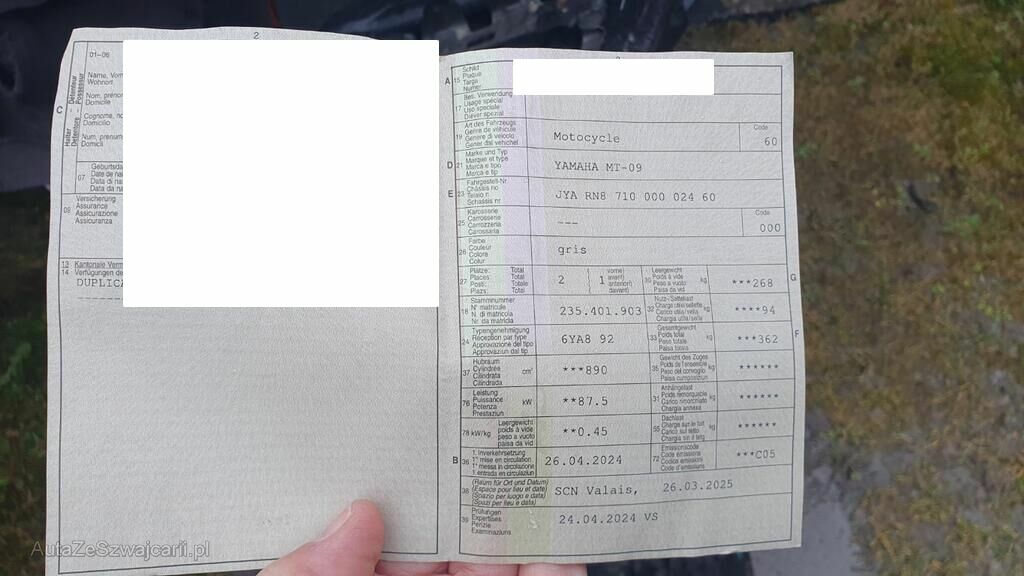 2
01-06
Name, Vorn
Wohnort
Nom, prénor
Domicile
Cognome, no
Domicilio
Num, prenum
Domicil
C
Halter Détenteur
Detentore Possessur
07
Geburtsda
Date de na
Data di na
Data da na
09
Versicherung
Assurance
Assicurazione
Assicuranza
13 Kantonale Verm
14 Verfügungen de
DUPLICA
A 15
Schild
Plaque
Targa
Numer
17
Bes. Verwendung
Usage spécial
Uso speciale
Diever spezial
19
Art des Fahrzeugs
Genre de véhicule
Genere di veicolo
Gener dal vehichel
Motocycle
Code
60
D 21
Marke und Typ
Marque et type
Marca e tipo
Marca e tip
YAMAHA MT-09
E 23
Fahrgestell-Nr.
Châssis no
Telaio n.
Schassis nr
JYA RN8 710 000 024 60
25
Karosserie
Carrosserie
Carrozzeria
Carossaria
---
Code
000
26
Farbe
Couleur
Colore
Colur
gris
27
Plätze: Total
Places: Total
Posti: Totale
Plazs: Total
2
1
vorne
avant)
anteriori)
davant)
30
Leergewicht
Poids à vide
Peso a vuoto
Paisa da vid
kg
***268
G
18
Stammnummer
N° matricule
N. di matricola
Nr. da matricla
235.401.903
32
Nutz-/Sattellast
Charge utile/sellette
Carico utile/sella
Chargia utila/sella
kg
****94
24
Typengenehmigung
Réception par type
Approvazione del tipo
Approvaziun dal tip
6YA8 92
33
Gesamtgewicht
Poids total
Peso totale
Paisa totala
kg
***362
F
37
Hubraum
Cylindrée
Cilindrata
Cilindrada
cm³
***890
35
Gewicht des Zuges
Poids de l'ensemble
Peso del convoglio
Paisa cumposiziun
kg
******
76
Leistung
Puissance
Potenza
Prestaziun
kW
**87.5
31
Anhängelast
Poids remorquable
Carico rimorchiato
Chargia annexa
kg
******
78 kW/kg
Leergewicht
poids à vide
peso a vuoto
paisa da vid
**0.45
55
Dachlast
Charge sur le toit
Carico sul tetto
Chargia sin il tetg
kg
******
B 36
1. Inverkehrsetzung
1re mise en circulation
1a messa in circolazione
1. entrada en circulaziun
26.04.2024
72
Emissionscode
Code émissions
Codice emissioni
Code d'emissiuns
***C05
38
(Raum für Ort und Datum)
(Espace pour lieu et date)
(Spazio per luogo e data)
(Spazi per lieu e data)
SCN Valais, 26.03.2025
39
Prüfungen
Expertises
Perizie
Examinaziuns
24.04.2024 VS
AutaZeSzwajcarii.pl